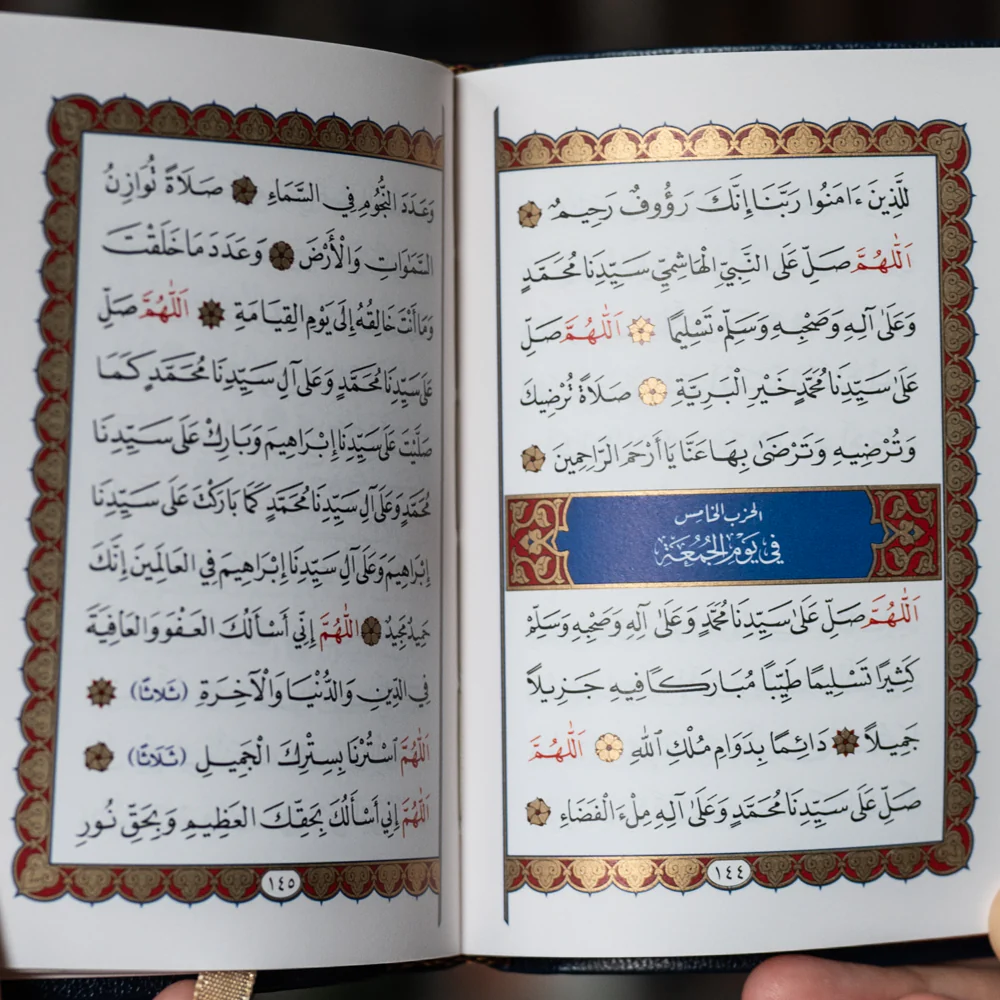 لِلَّذِينَ ءَامَنُوا رَبَّنَا إِنَّكَ رَؤُوفٌ رَحِيمٌ
اَللّٰهُمَّ صَلِّ عَلَى النَّبِيِّ الْهَاشِمِيِّ سَيِّدِنَا مُحَمَّدٍ
وَعَلَىٰ آلِهِ وَصَحْبِهِ وَسَلِّمْ تَسْلِيمًا اَللّٰهُمَّ صَلِّ
عَلَىٰ سَيِّدِنَا مُحَمَّدٍ خَيْرِ الْبَرِيَّةِ صَلَاةً تُرْضِيكَ
وَتُرْضِيهِ وَتَرْضَىٰ بِهَا عَنَّا يَا أَرْحَمَ الرَّاحِمِينَ
الحزب الخامس
فِي يَوْمِ الْجُمُعَةِ
اَللّٰهُمَّ صَلِّ عَلَىٰ سَيِّدِنَا مُحَمَّدٍ وَعَلَىٰ آلِهِ وَصَحْبِهِ وَسَلِّمْ
كَثِيرًا تَسْلِيمًا طَيِّبًا مُبَارَكًا فِيهِ جَزِيلًا
جَمِيلاً دَائِمًا بِدَوَامِ مُلْكِ اللّٰهِ اَللّٰهُمَّ
صَلِّ عَلَىٰ سَيِّدِنَا مُحَمَّدٍ وَعَلَىٰ آلِهِ مِلْءَ الْفَضَاءِ
١٤٤
وَعَدَدَ النُّجُومِ فِي السَّمَاءِ صَلَاةً تُوَازِنُ
السَّمٰوَاتِ وَالْأَرْضَ وَعَدَدَ مَا خَلَقْتَ
وَمَا أَنْتَ خَالِقُهُ إِلَىٰ يَوْمِ الْقِيَامَةِ اَللّٰهُمَّ صَلِّ
عَلَىٰ سَيِّدِنَا مُحَمَّدٍ وَعَلَىٰ آلِ سَيِّدِنَا مُحَمَّدٍ كَمَا
صَلَّيْتَ عَلَىٰ سَيِّدِنَا إِبْرَاهِيمَ وَبَارِكْ عَلَىٰ سَيِّدِنَا
مُحَمَّدٍ وَعَلَىٰ آلِ سَيِّدِنَا مُحَمَّدٍ كَمَا بَارَكْتَ عَلَىٰ سَيِّدِنَا
إِبْرَاهِيمَ وَعَلَىٰ آلِ سَيِّدِنَا إِبْرَاهِيمَ فِي الْعَالَمِينَ إِنَّكَ
حَمِيدٌ مَجِيدٌ اَللّٰهُمَّ إِنِّي أَسْأَلُكَ الْعَفْوَ وَالْعَافِيَةَ
فِي الدِّينِ وَالدُّنْيَا وَالْآخِرَةِ (ثَلَاثًا)
اَللّٰهُمَّ اسْتُرْنَا بِسِتْرِكَ الْجَمِيلِ (ثَلَاثًا)
اَللّٰهُمَّ إِنِّي أَسْأَلُكَ بِحَقِّكَ الْعَظِيمِ وَبِحَقِّ نُورِ
١٤٥